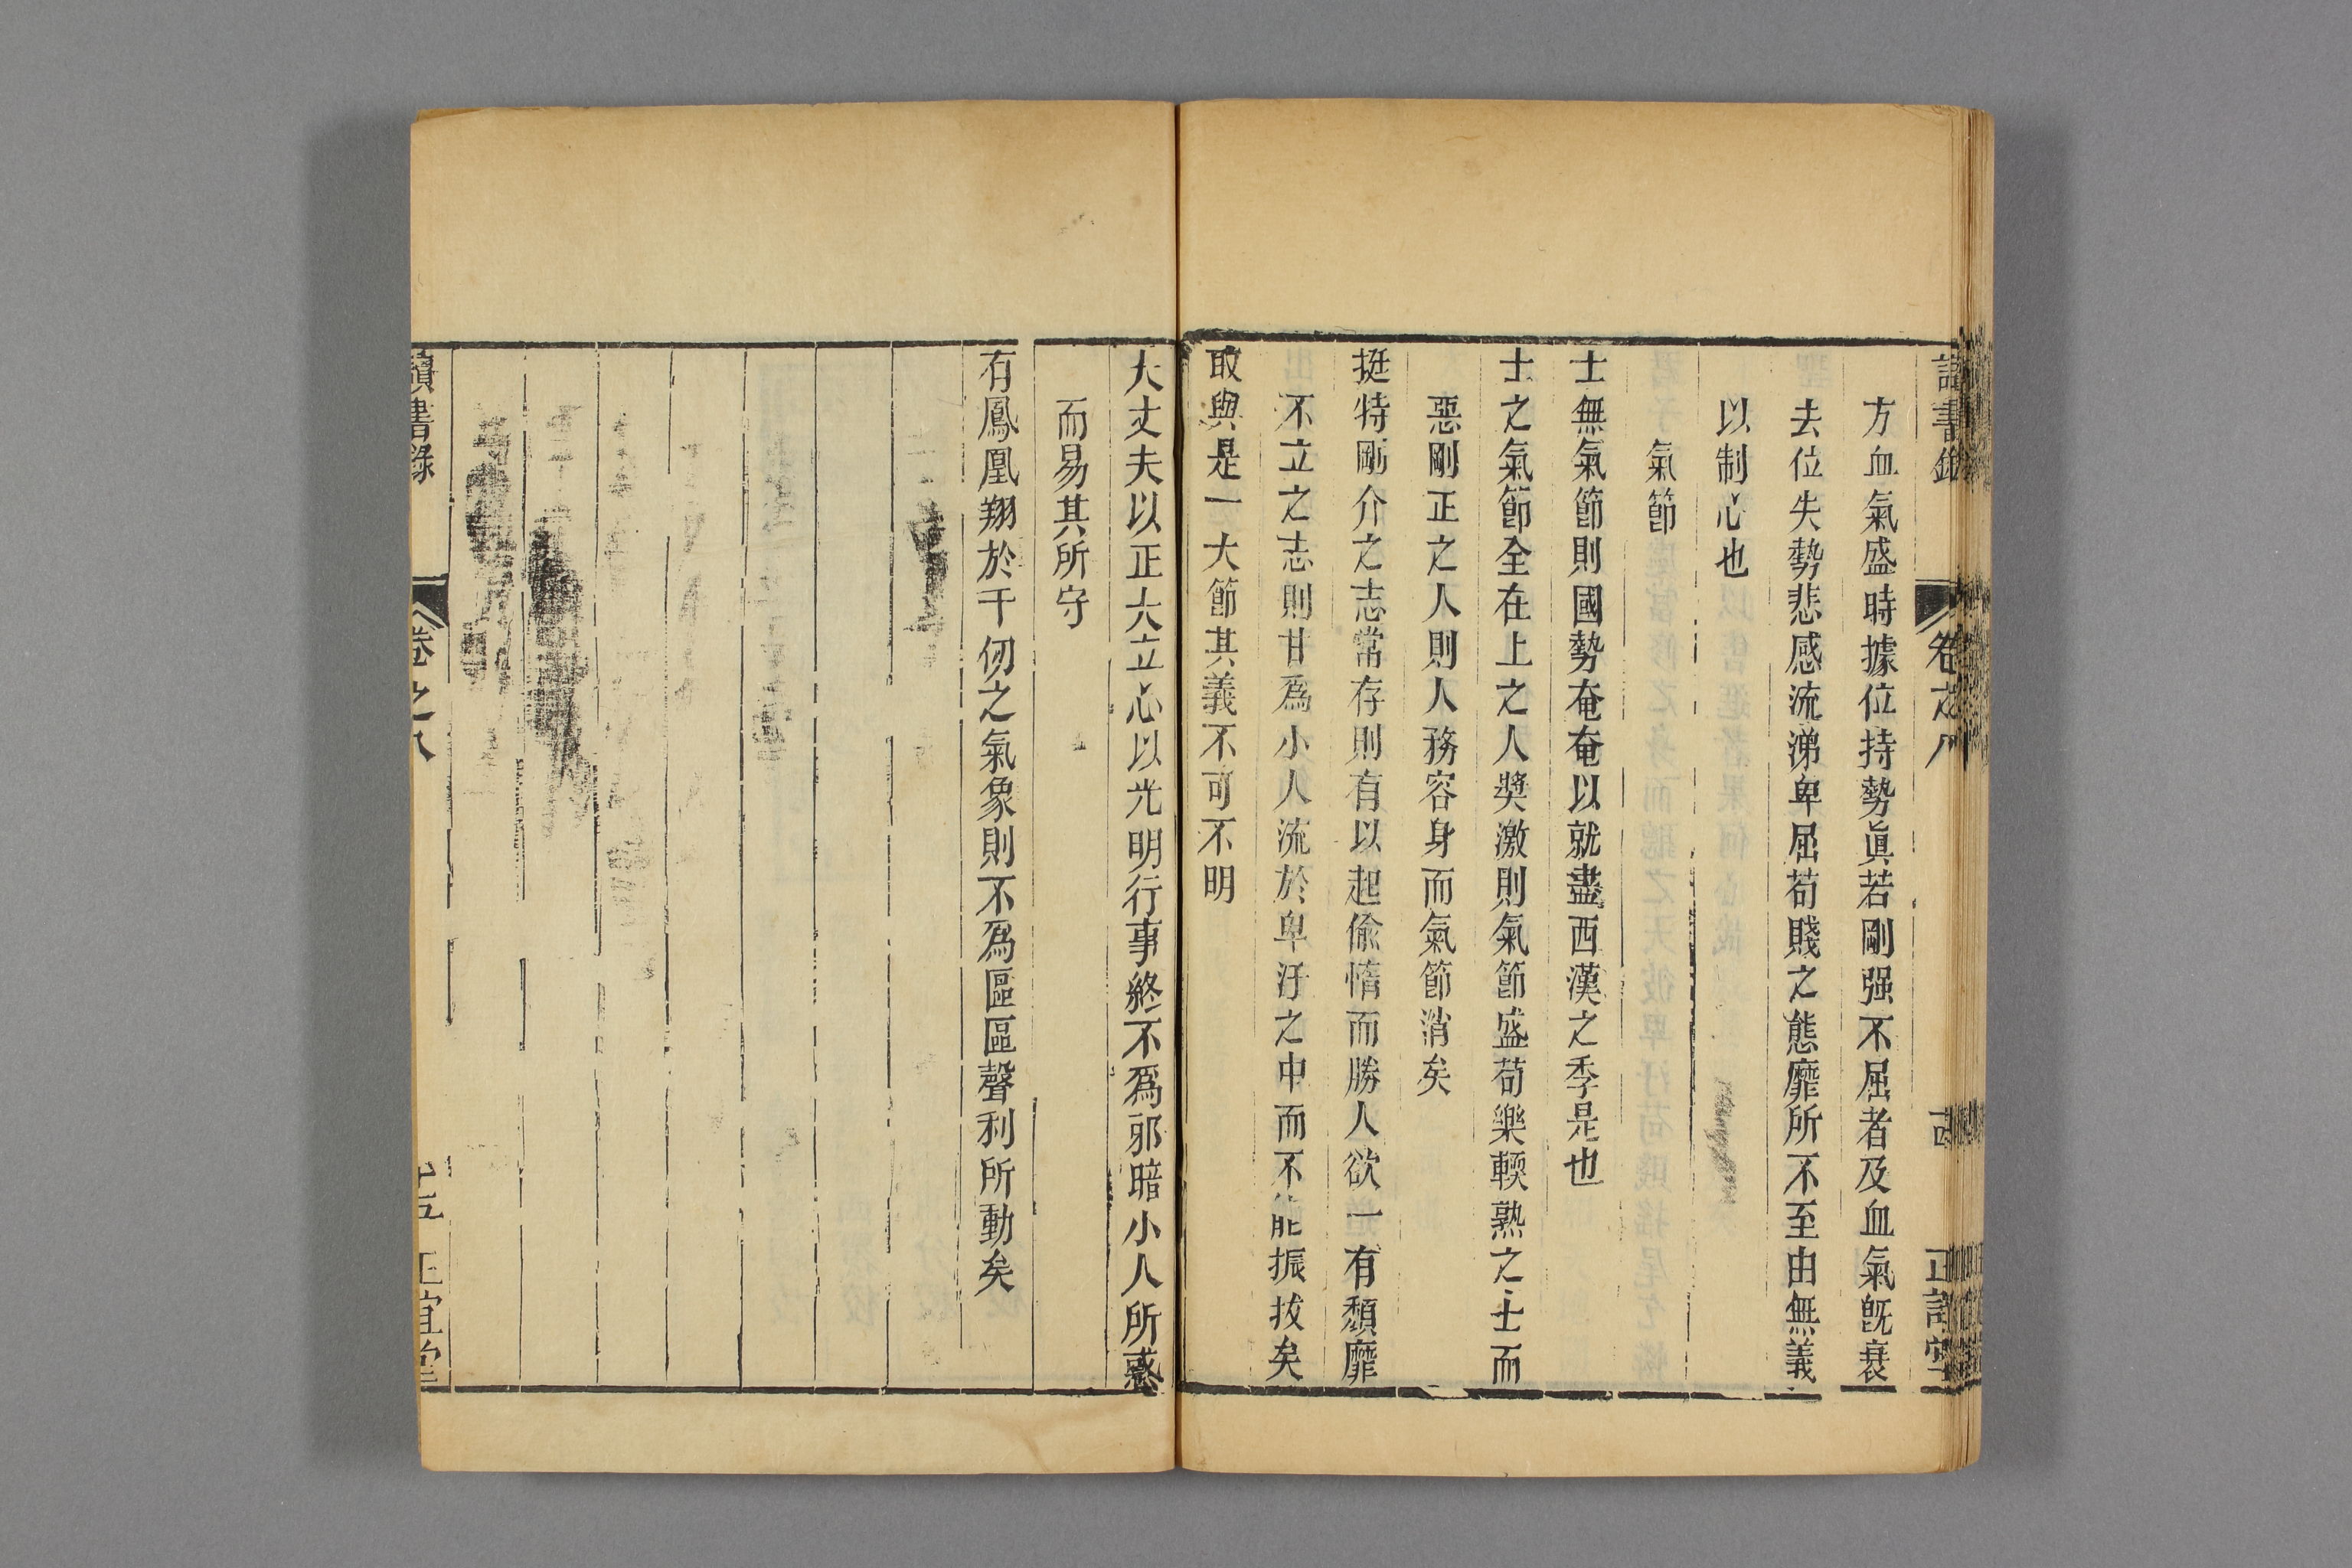 讀書錄 卷之八 正誼堂
方血氣盛時據位持勢眞若剛强不屈者及血氣旣衰
去位失勢悲感流涕卑屈苟賤之態靡所不至由無義
以制心也
氣節
士無氣節則國勢奄奄以就盡西漢之季是也
士之氣節全在上之人奬激則氣節盛苟樂輭熟之士而
惡剛正之人則人務容身而氣節消矣
挺特剛介之志常存則有以起偷惰而勝人欲一有頽靡
不立之志則甘爲小人流於卑汙之中而不能振拔矣
取與是一大節其義不可不明
大丈夫以正大立心以光明行事終不爲邪暗小人所惑
而易其所守
有鳳凰翔於千仞之氣象則不爲區區聲利所動矣
讀書錄 卷之八 十五 正誼堂